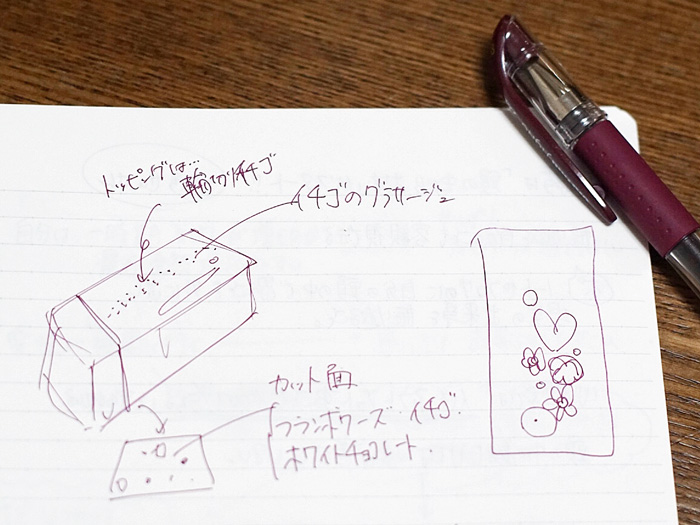 トッピングは…
輪切りイチゴ
イチゴのグラサージュ
カット面
フランボワーズ・イチゴ.
ホワイトチョコレート.